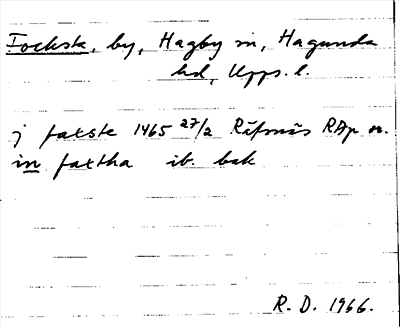 Focksta, by, Hagby sn, Hagunda
hd, Upps. l.
j faxste 1465 27/2 Räfsnäs RAp or.
in faxtha ib. bak
R. D. 1966.